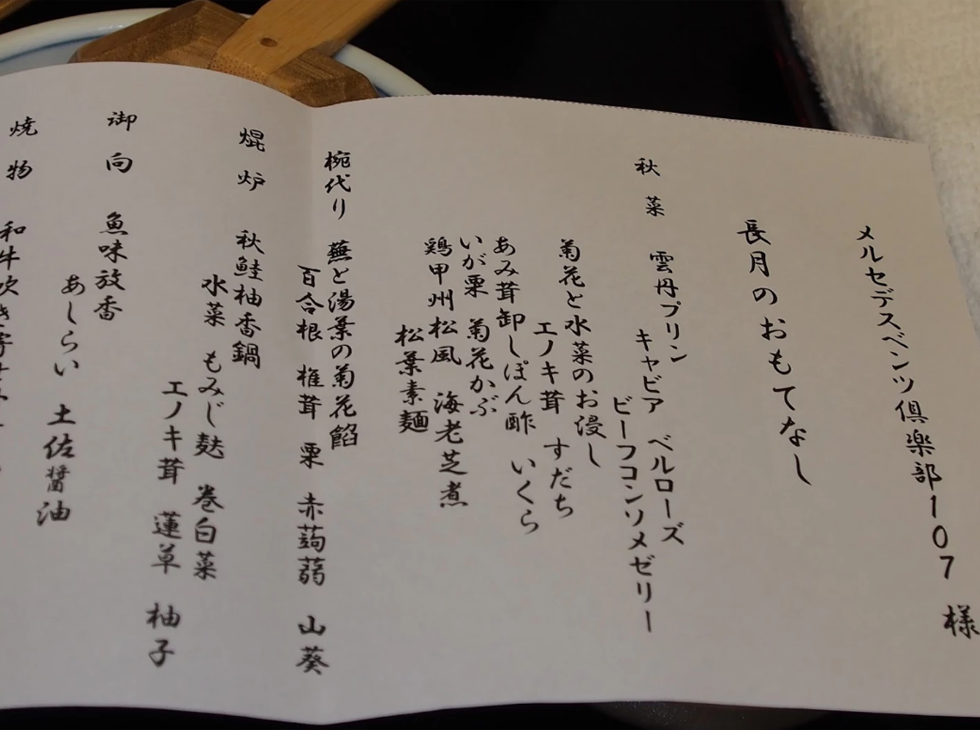 メルセデスベンツ倶楽部107 様
長月のおもてなし
秋菜 雲丹プリン ベルローズ
キャビア ビーフコンソメゼリー
菊花と水菜のお浸し
エノキ茸 すだち
あみ茸卸しぽん酢 いくら
いが栗 菊花かぶ
鶏甲州松風 海老芝煮
松葉素麺
椀代り 蕪と湯葉の菊花餡
百合根 椎茸 栗 赤蒟蒻 山葵
焜炉 秋鮭柚香鍋
水菜 もみじ麸 巻白菜
エノキ茸 蓮草 柚子
御向 魚味放香
あしらい 土佐醤油
焼物 和牛吹き寄せ